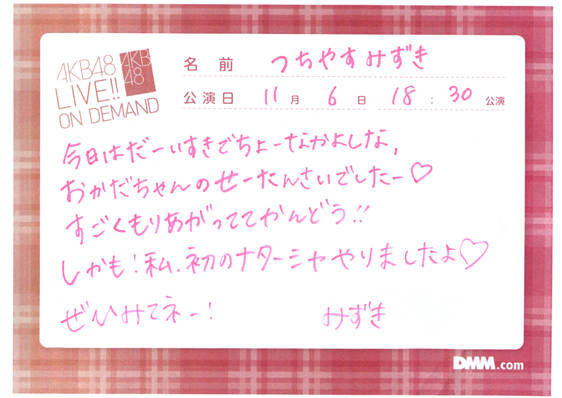 AKB48
LIVE!!
ON DEMAND
AKB
48
名前 つちやすみずき
公演日 11月 6日 18:30 公演
今日はだーいすきでちょーなかよしな、
おかだちゃんのせーたんさいでしたー♡
すごくもりあがっててかんどう!!
しかも!私、初のナターシャやりましたよ♡
ぜひみてネー!
みずき
DMM.com